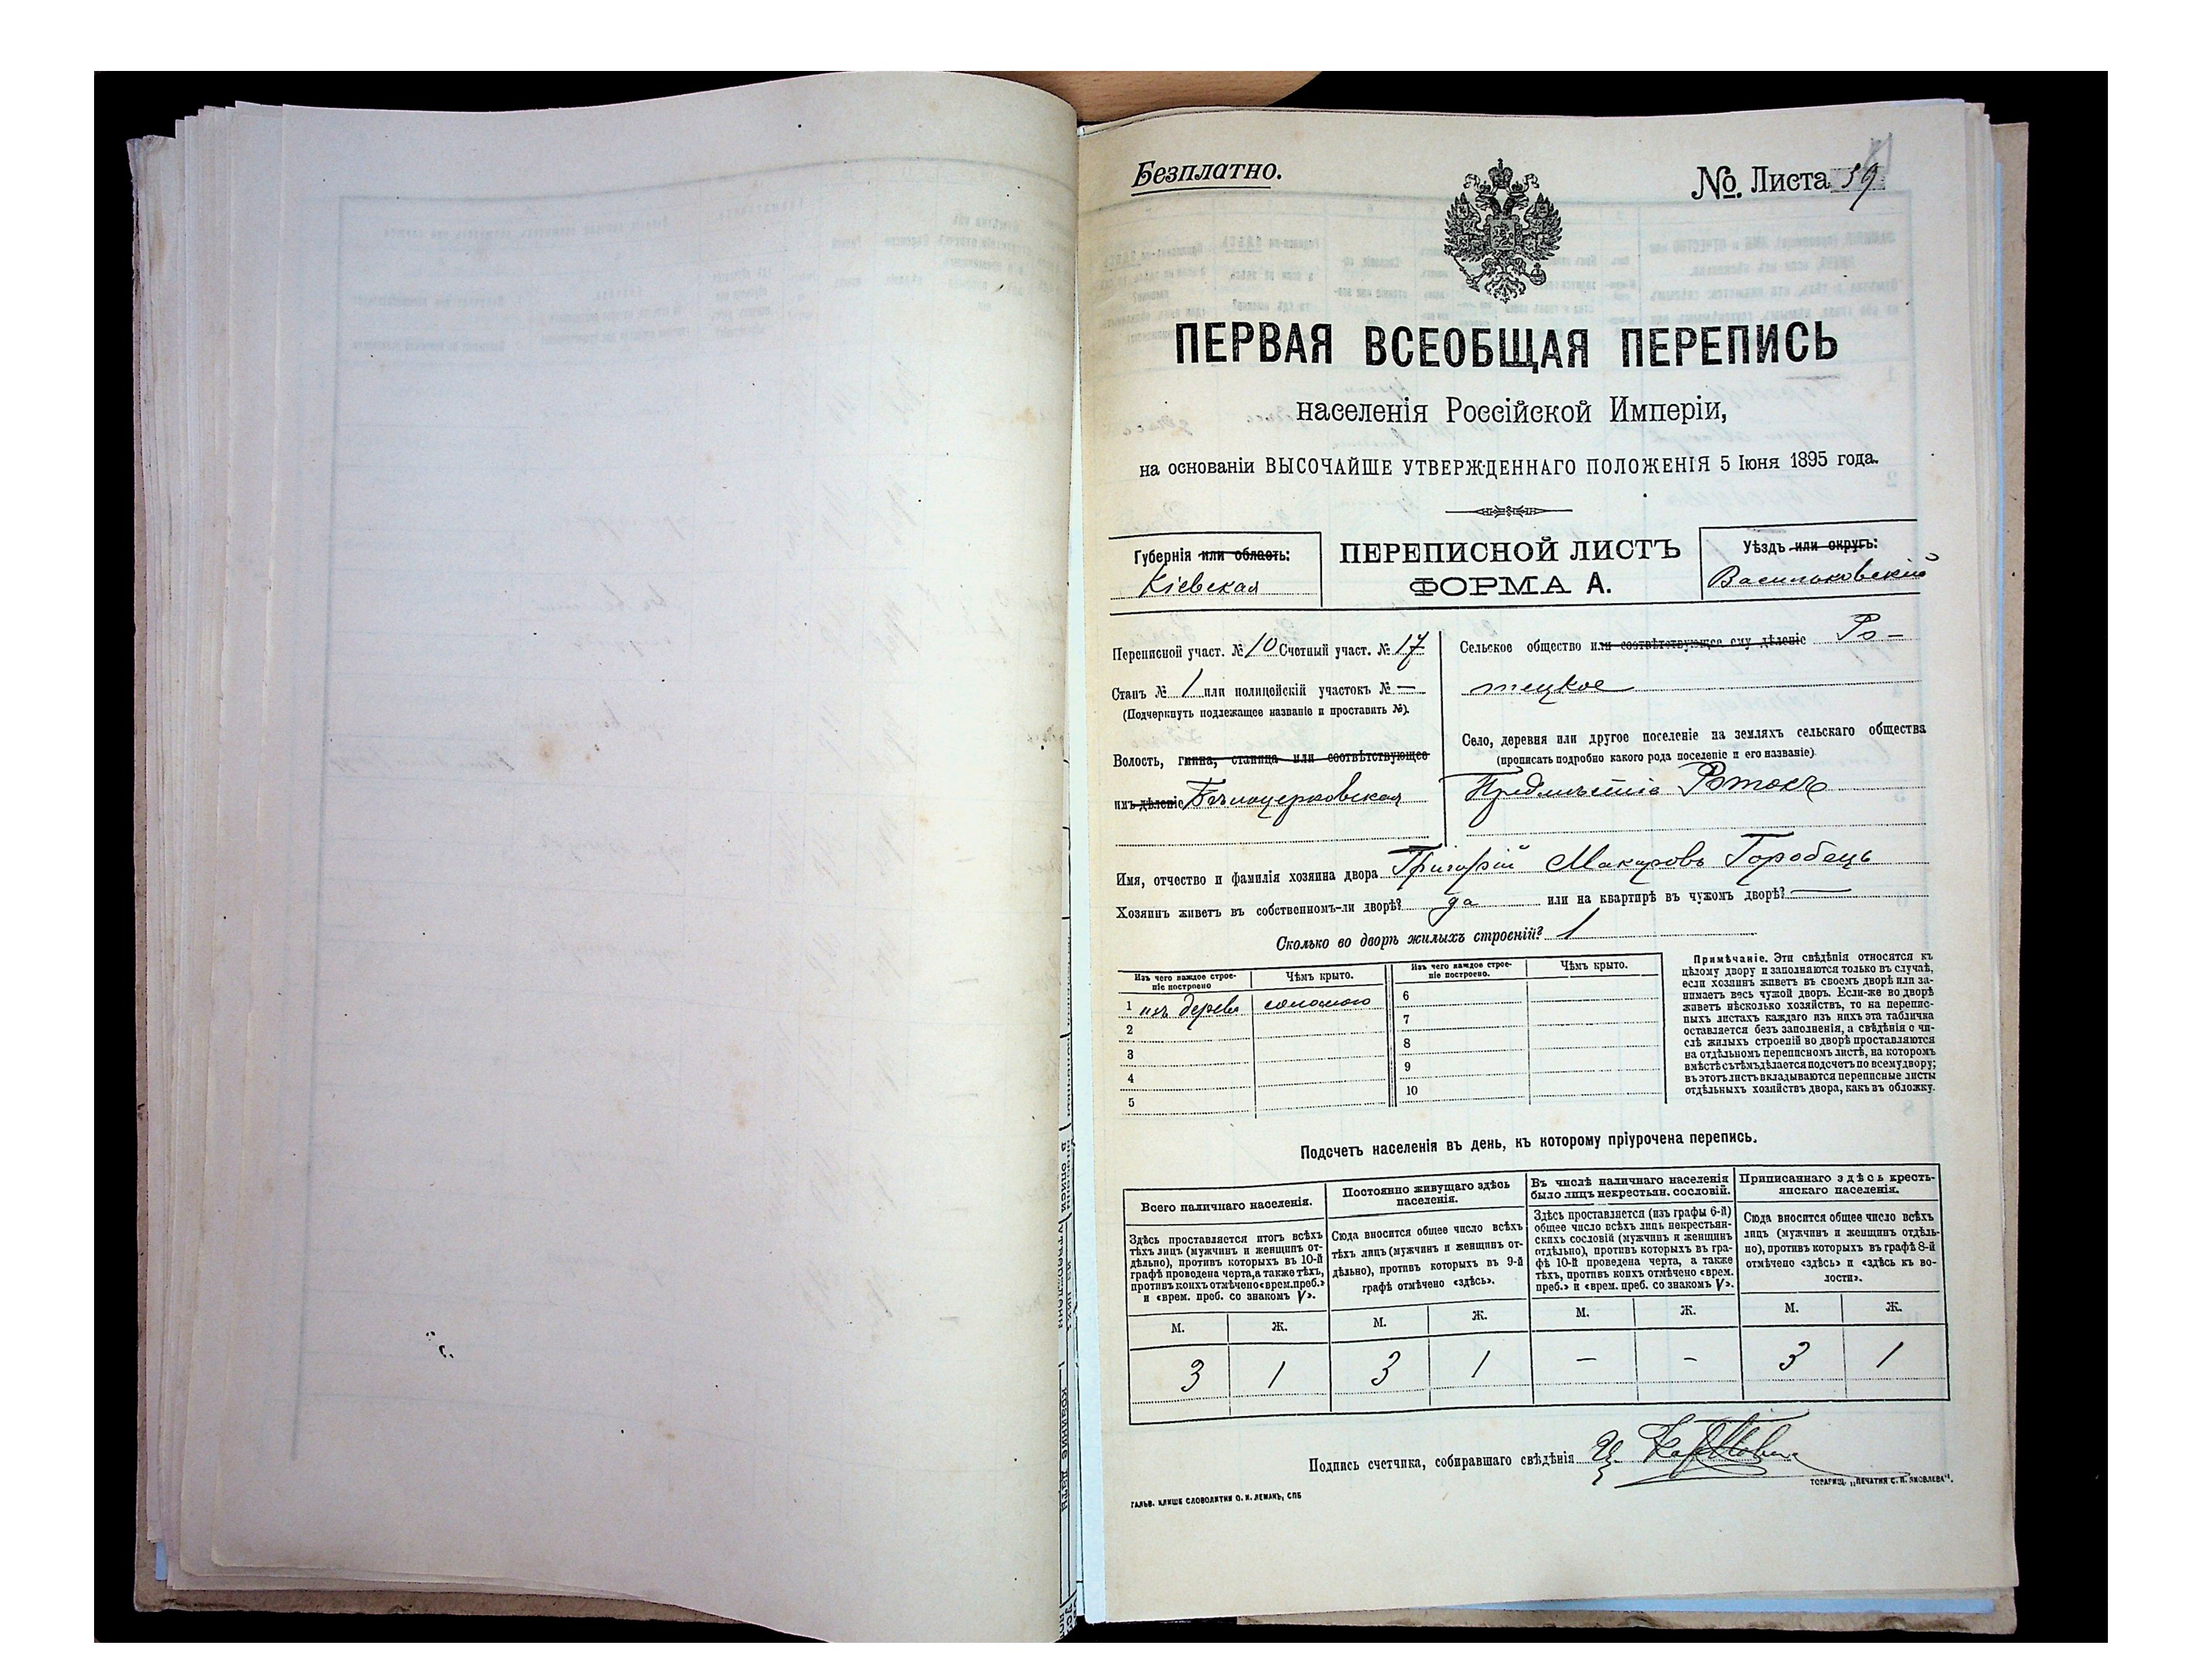 Безплатно.
№ Листа 59
ПЕРВАЯ ВСЕОБЩАЯ ПЕРЕПИСЬ
населенія Россійской Имперіи,
на основаніи ВЫСОЧАЙШЕ УТВЕРЖДЕННАГО ПОЛОЖЕНІЯ 5 Іюня 1895 года.
Губернія или область:
Кіевская
ПЕРЕПИСНОЙ ЛИСТЪ
ФОРМА А.
Уѣздъ или округъ:
Васильковскій
Переписной участ. № 10 Счетный участ. № 17
Станъ № 1 или полицейскій участокъ № —
(Подчеркнуть подлежащее названіе и проставить №).
Волость, гмина, станица или соотвѣтствующее
имъ дѣленіе Бѣлоцерковская
Сельское общество или соотвѣтствующее ему дѣленіе Ро-
тецкое
Село, деревня или другое поселеніе на земляхъ сельскаго общества
(прописать подробно какого рода поселеніе и его названіе)
Предмѣстіе Ротокъ
Имя, отчество и фамилія хозяина двора Григорій Макаровъ Горобець
Хозяинъ живетъ въ собственномъ-ли дворѣ? да или на квартирѣ въ чужомъ дворѣ? —
Сколько во дворѣ жилыхъ строеній? 1
Изъ чего каждое строе-
ніе построено
Чѣмъ крыто.
Изъ чего каждое строе-
ніе построено.
Чѣмъ крыто.
1 изъ дерева соломою
2
3
4
5
6
7
8
9
10
Примѣчаніе. Эти свѣдѣнія относятся къ
цѣлому двору и заполняются только въ случаѣ,
если хозяинъ живетъ въ своемъ дворѣ или за-
нимаетъ весь чужой дворъ. Если-же во дворѣ
живетъ нѣсколько хозяйствъ, то на перепис-
ныхъ листахъ каждаго изъ нихъ эта табличка
оставляется безъ заполненія, а свѣдѣнія о чи-
слѣ жилыхъ строеній во дворѣ проставляются
на отдѣльномъ переписномъ листѣ, на которомъ
вмѣстѣ съ тѣмъ дѣлается подсчетъ по всему двору;
въ этотъ листъ вкладываются переписные листы
отдѣльныхъ хозяйствъ двора, какъ въ обложку.
Подсчетъ населенія въ день, къ которому пріурочена перепись.
Всего наличнаго населенія.
Здѣсь проставляется итогъ всѣхъ
тѣхъ лицъ (мужчинъ и женщинъ от-
дѣльно), противъ которыхъ въ 10-й
графѣ проводена черта, а также тѣхъ,
противъ коихъ отмѣчено «врем. преб.»
и «врем. преб. со знакомъ V».
Постоянно живущаго здѣсь
населенія.
Сюда вносится общее число всѣхъ
тѣхъ лицъ (мужчинъ и женщинъ от-
дѣльно), противъ которыхъ въ 9-й
графѣ отмѣчено «здѣсь».
Въ числѣ наличнаго населенія
было лицъ некрестьян. сословій.
Здѣсь проставляется (изъ графы 6-й)
общее число всѣхъ лицъ некрестьян-
скихъ сословій (мужчинъ и женщинъ
отдѣльно), противъ которыхъ въ гра-
фѣ 10-й проведена черта, а также
тѣхъ, противъ коихъ отмѣчено «врем.
преб.» и «врем. преб. со знакомъ V».
Приписаннаго здѣсь кресть-
янскаго населенія.
Сюда вносится общее число всѣхъ
лицъ (мужчинъ и женщинъ отдѣль-
но), противъ которыхъ въ графѣ 8-й
отмѣчено «здѣсь» и «здѣсь къ во-
лости».
М. Ж. М. Ж. М. Ж. М. Ж.
3 1 3 1 – – 3 1
Подпись счетчика, собиравшаго свѣдѣнія
ГАЛЬВ. КЛИШЕ СЛОВОЛИТНИ О. И. ЛЕМАНЪ, СПБ
ТОВАРИЩ. „ПЕЧАТНЯ С. П. ЯКОВЛЕВА".